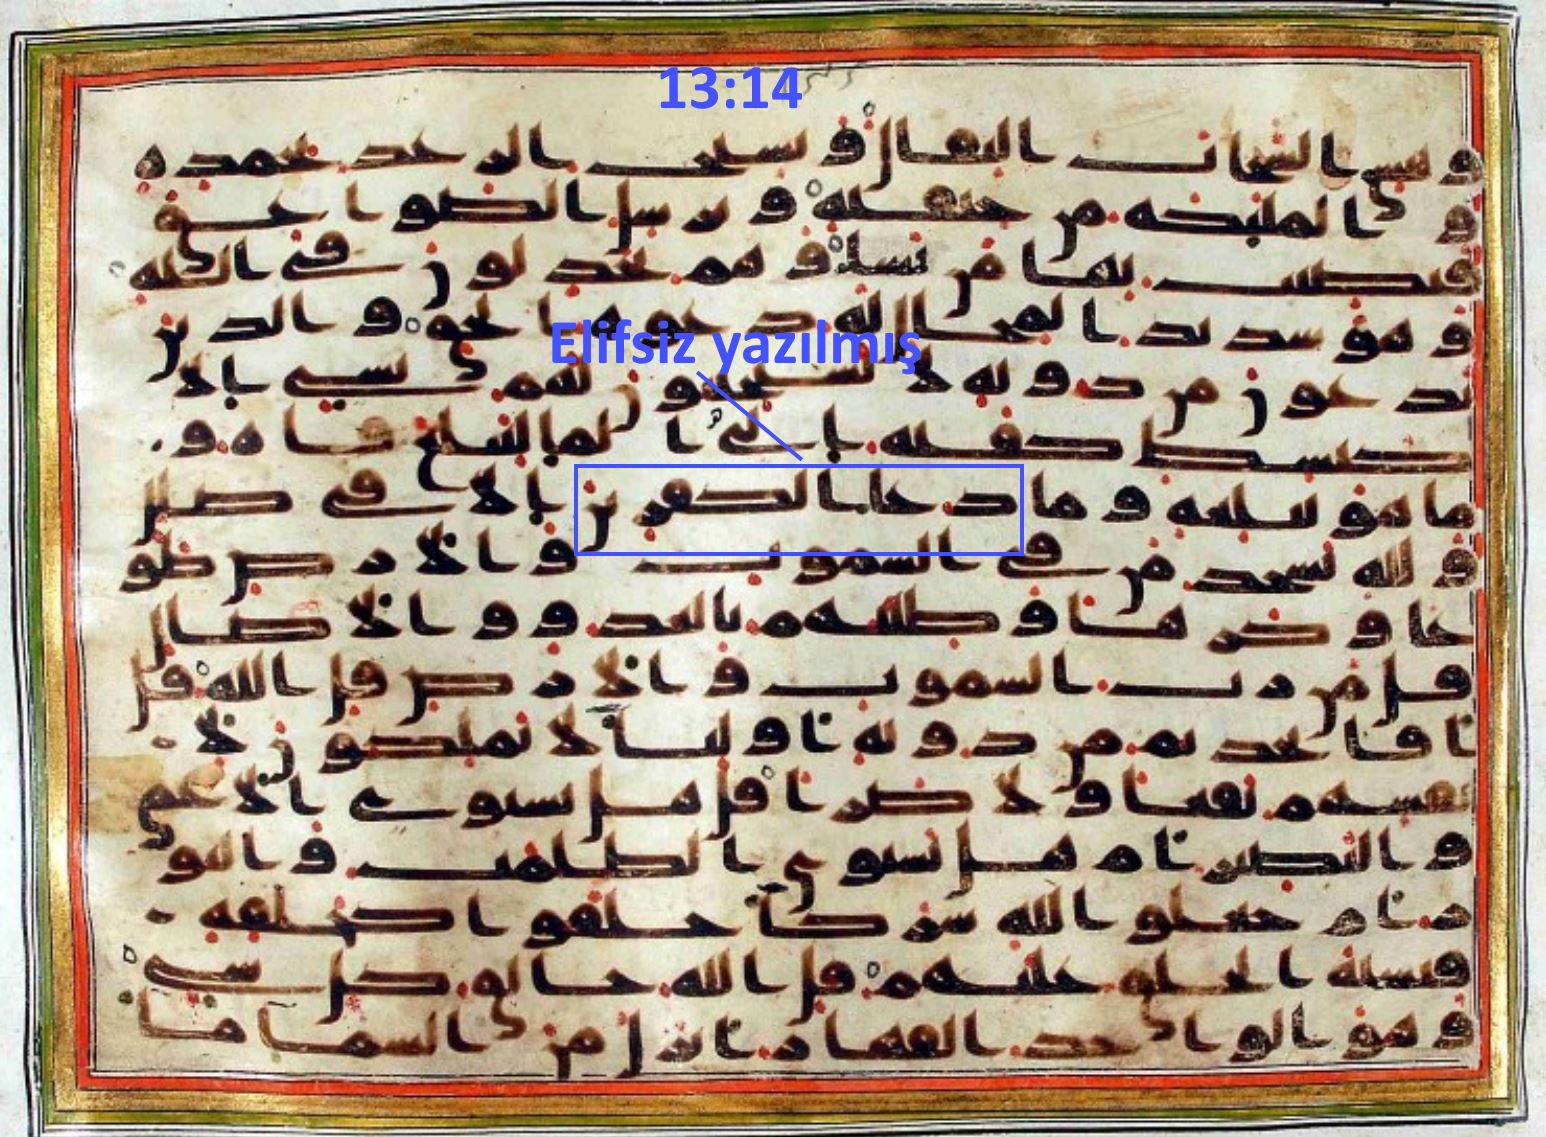 13:14
و ينشئ السحاب الثقال و يسبح الرعد بحمده
و الملئكة من خيفته و يرسل الصواعق
فيصيب بها من يشا و هم يجدلون في الله
و هو شديد المحال له دعوة الحق و الذين
Elifsiz yazılmış
يدعون من دونه لا يستجيبون لهم بشي إلا
كبسط كفيه إلى الما ليبلغ فاه و
ما هو ببلغه و ما دعا الكفرين إلا في ضلل
و لله يسجد من في السموت و الارض طو
عا و كرها و ظللهم بالغدو و الاصال
قل من رب السموت و الارض قل الله قل
افاتخذتم من دونه اوليا لا يملكون لا
نفسهم نفعا و لا ضرا قل هل يستوي الاعمى
و البصير ام هل تستوي الظلمت و النور
ام جعلوا لله شركا خلقوا كخلقه
فتشبه الخلق عليهم قل الله خلق كل شي
و هو الوحد القهار انزل من السما ما